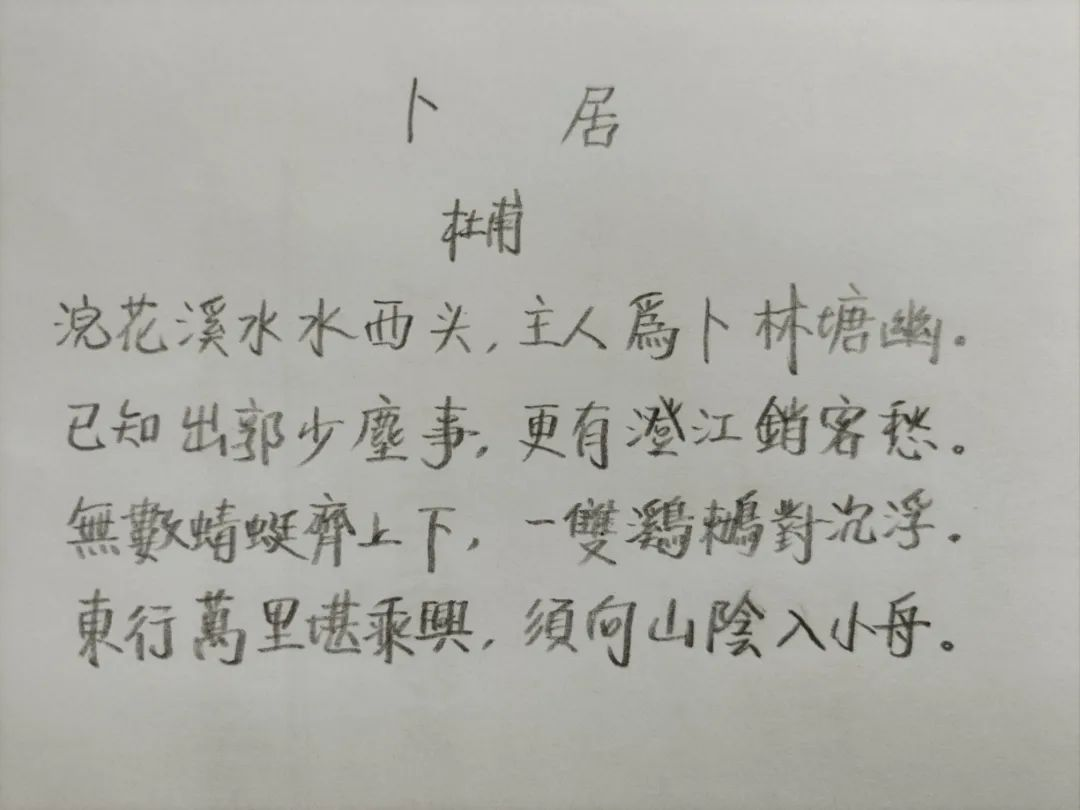 卜居
杜甫
浣花溪水水西头,主人爲卜林塘幽。
已知出郭少塵事,更有澄江銷客愁。
無數蜻蜓齊上下,一雙鸂鶒對沉浮。
東行萬里堪乘興,須向山陰入小舟。